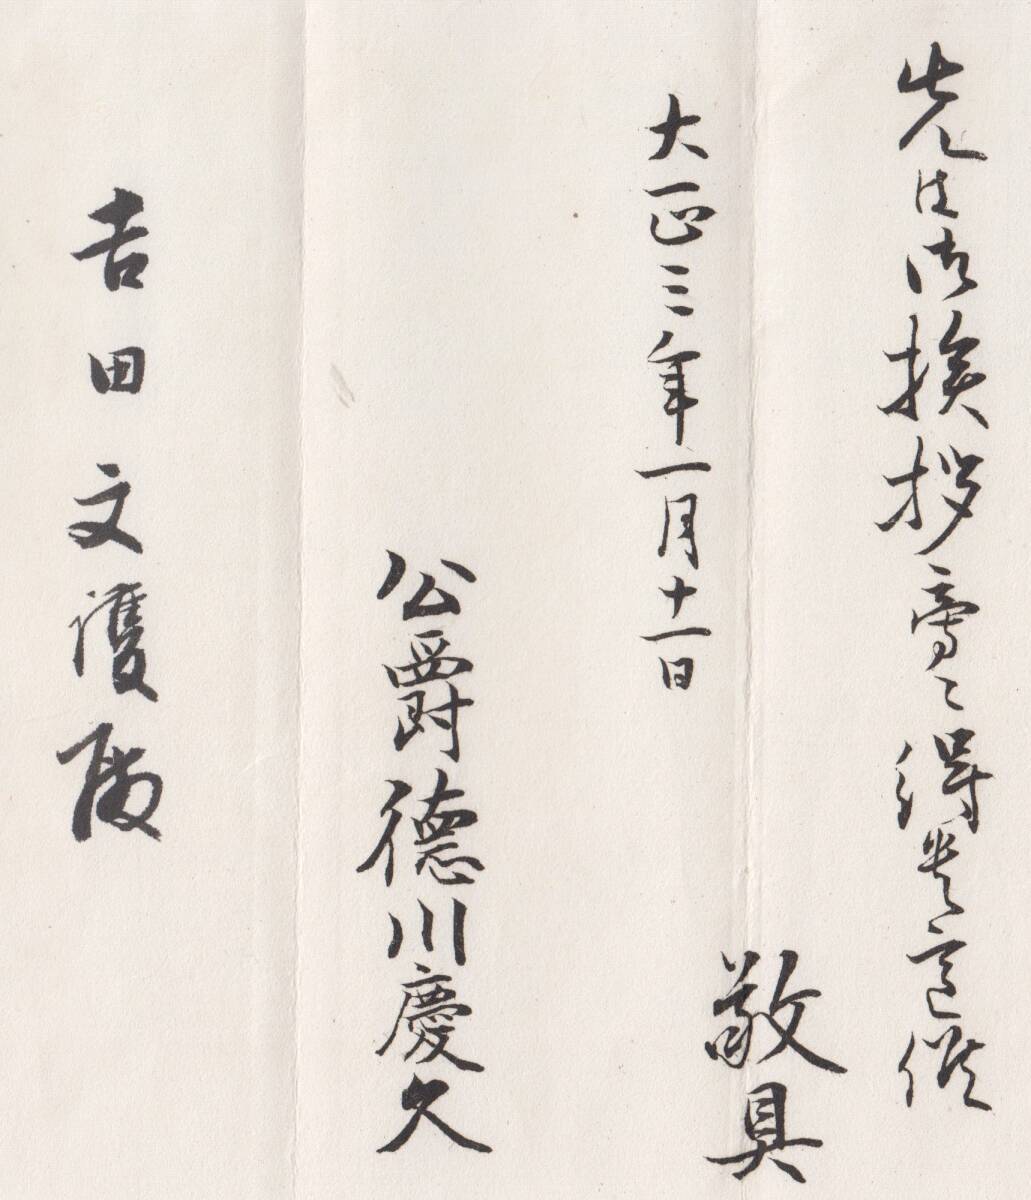 先は御挨拶旁々得貴意候
敬具
大正三年一月十一日
公爵徳川慶久
吉田文護殿